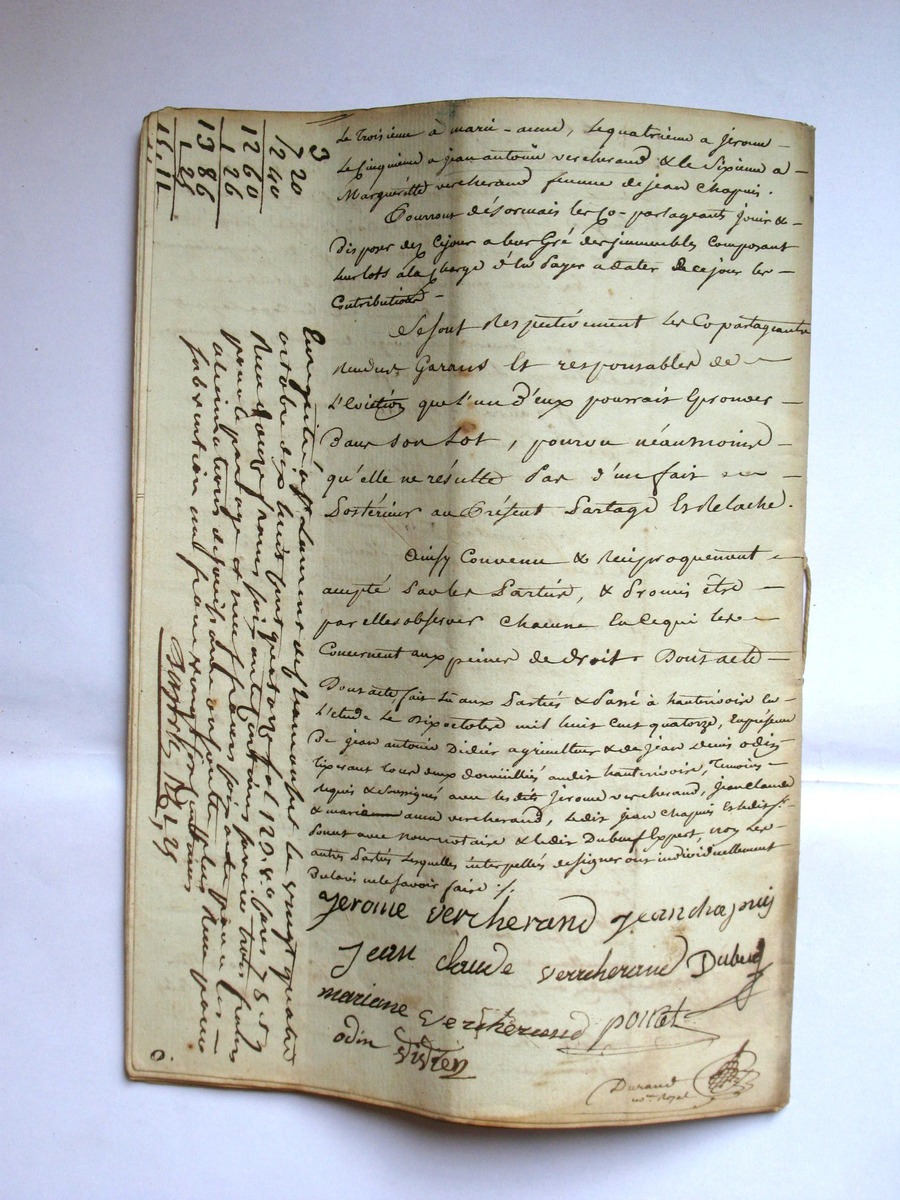 Le Troisieme à marie-anne, Lequatrieme a jerome
Le Cinquieme a jean antoine vercherand & le Sixieme a
Margueritte vercherand femme de jean Chapuis.
Pourront désormais les Co-partageants jouir &
Disposer dez Cejour a leur Gré des jmmeubles Composant
leurs lots à la Charge d'En payer a dater de ce jour les
Contributions
Se sont Respectivement les Copartageants
Rendus Garans Et responsables de
L'Eviction que l'un d'eux pourrait Eprouver
Dans son Lot, pourvu néanmoins
qu'elle ne résulte Pas d'un fait
Postérieur au Présent Partage Et Relache.
Ainsy Convenu & Réciproquement
accepté Par les Parties, & Promis être
par elles observer Chacune En Ce qui les
Concernent aux peines de droit. Dont acte
Dont acte, fait Lu aux Parties & Passé à hauterivoir En
L'étude Le Dix octobre mil huit Cent quatorze, En présence
De jean antoine Didier agriculteur & de jean Denis odin
tisserant tous deux domiciliés audit hauterivoire, Temoins
requis & Soussignés avec les dits jérome vercherand, jean Claude
& marie anne vercherand, ledit jean Chapuis
avec nous notaire & ledit Dubeuf Expert, non les
autres Parties Lesquelles interpellés de signer ont individuellement
Déclaré ne le savoir faire ./.
jerome vercherand jean chapuis
jean claude vercherand Dubeuf
mariane vercherand poncet
odin Didier
Durand
no.re Royal
3
720
1240
1260
126
1386
125
1511
Enregistré à St Laurent de Chamousset le vingt quatre
octobre dix huit cent quatorze fol 120 v.o Cases 7 8 &
Reçu douze francs soixante centimes savoir trois francs
pour le partage & neuf francs soixante pour les
plus Reçu pour
subvention un franc vingt six centimes